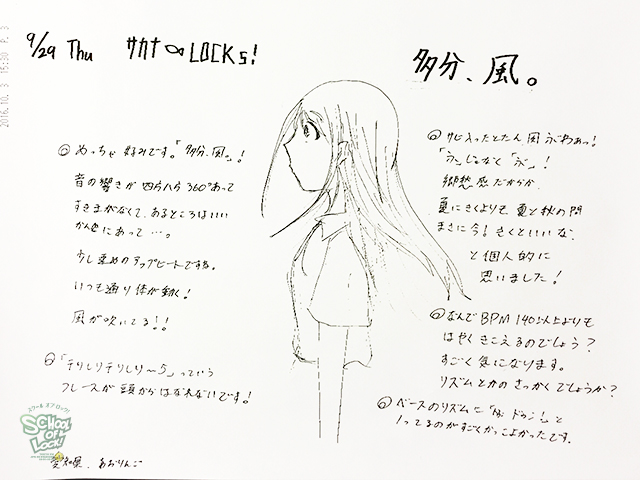 2016.10. 3 15:30 P. 3
9/29 Thu サカナLOCKS!
多分、風。
◎ めっちゃ好みです。「多分、風。」!
音の響きが四方八方360°あって
すきまがなくて、あるところはいい
かんじにあって…。
少し重めのアップビートですね。
いつも通り体が動く!
風が吹いてる!!
◎「テリしりテリしり〜ら」っていう
フレーズが頭からはなれないです!
◎ サビ入ったとたん風ぶわぁっ!
「ふ」じゃなく「ぶ」!
郷愁感だからか、
夏にきくよりも夏と秋の間
まさに今!きくといいな、
と個人的に
思いました!
◎ なんでBPM 140以上よりも
はやくきこえるのでしょう?
すごく気になります。
リズムとかのさっかくでしょうか?
◎ ベースのリズムに
ってるのがすごくかっこよかったです。
スクールオブロック!
SCHOOL OF LOCK!
愛知県、あおりんご